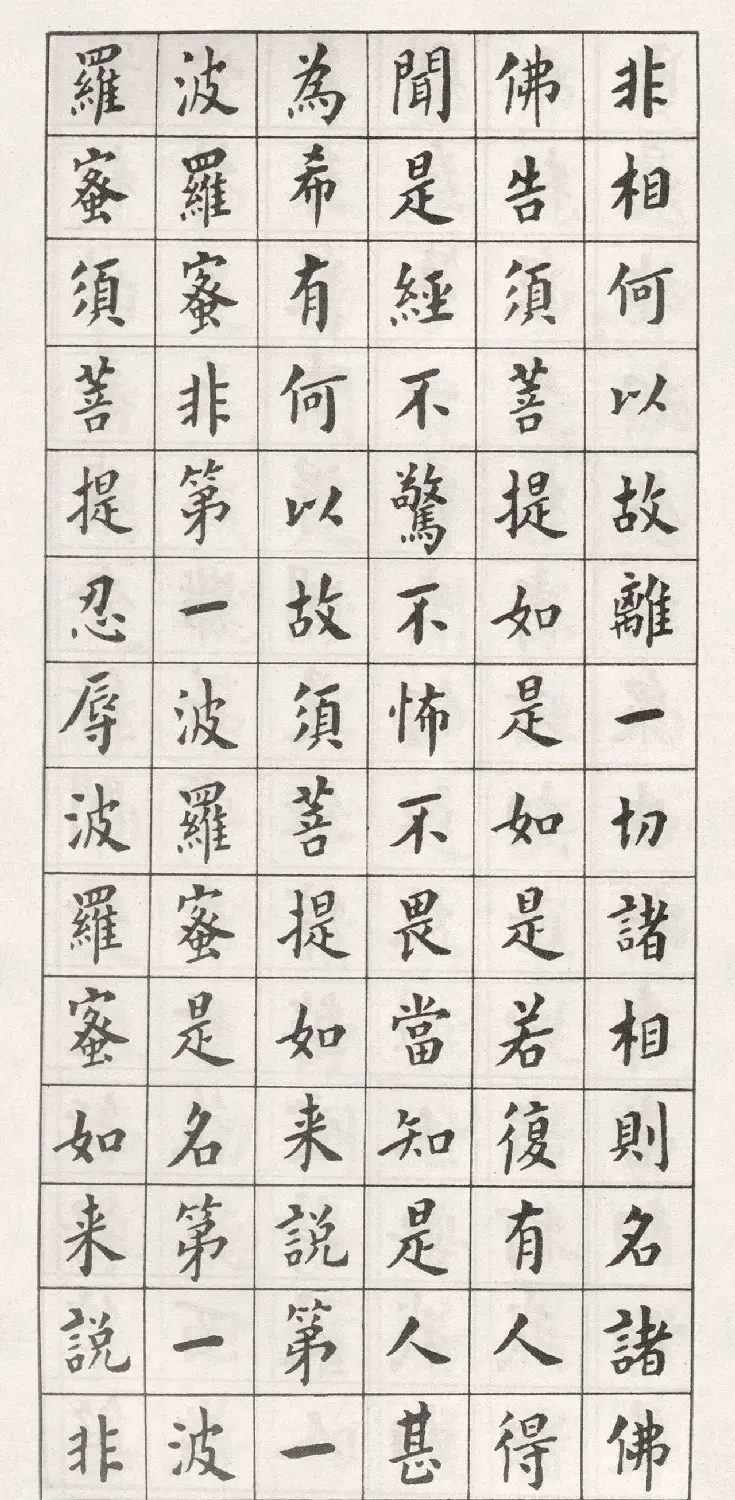 非相何以故離一切諸相則名諸佛
佛告須菩提如是如是若復有人得
聞是經不驚不怖不畏當知是人甚
為希有何以故須菩提如来說第一
波羅蜜非第一波羅蜜是名第一波
羅蜜須菩提忍辱波羅蜜如来說非